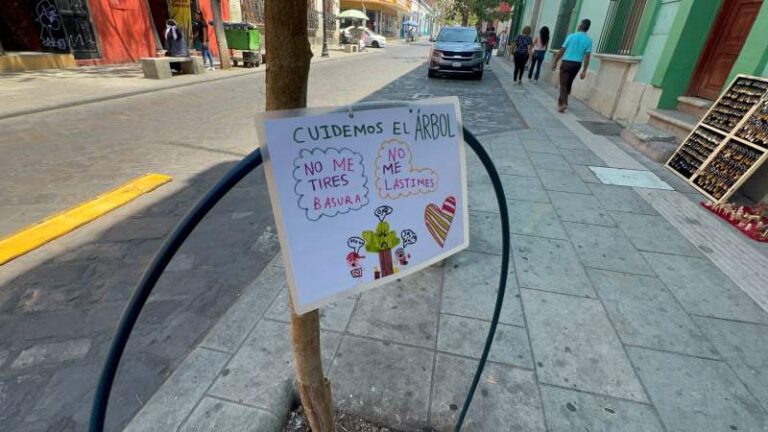 CUIDEMOS EL ÁRBOL
NO ME
TIRES
BASURA
NO ME
LASTIMES